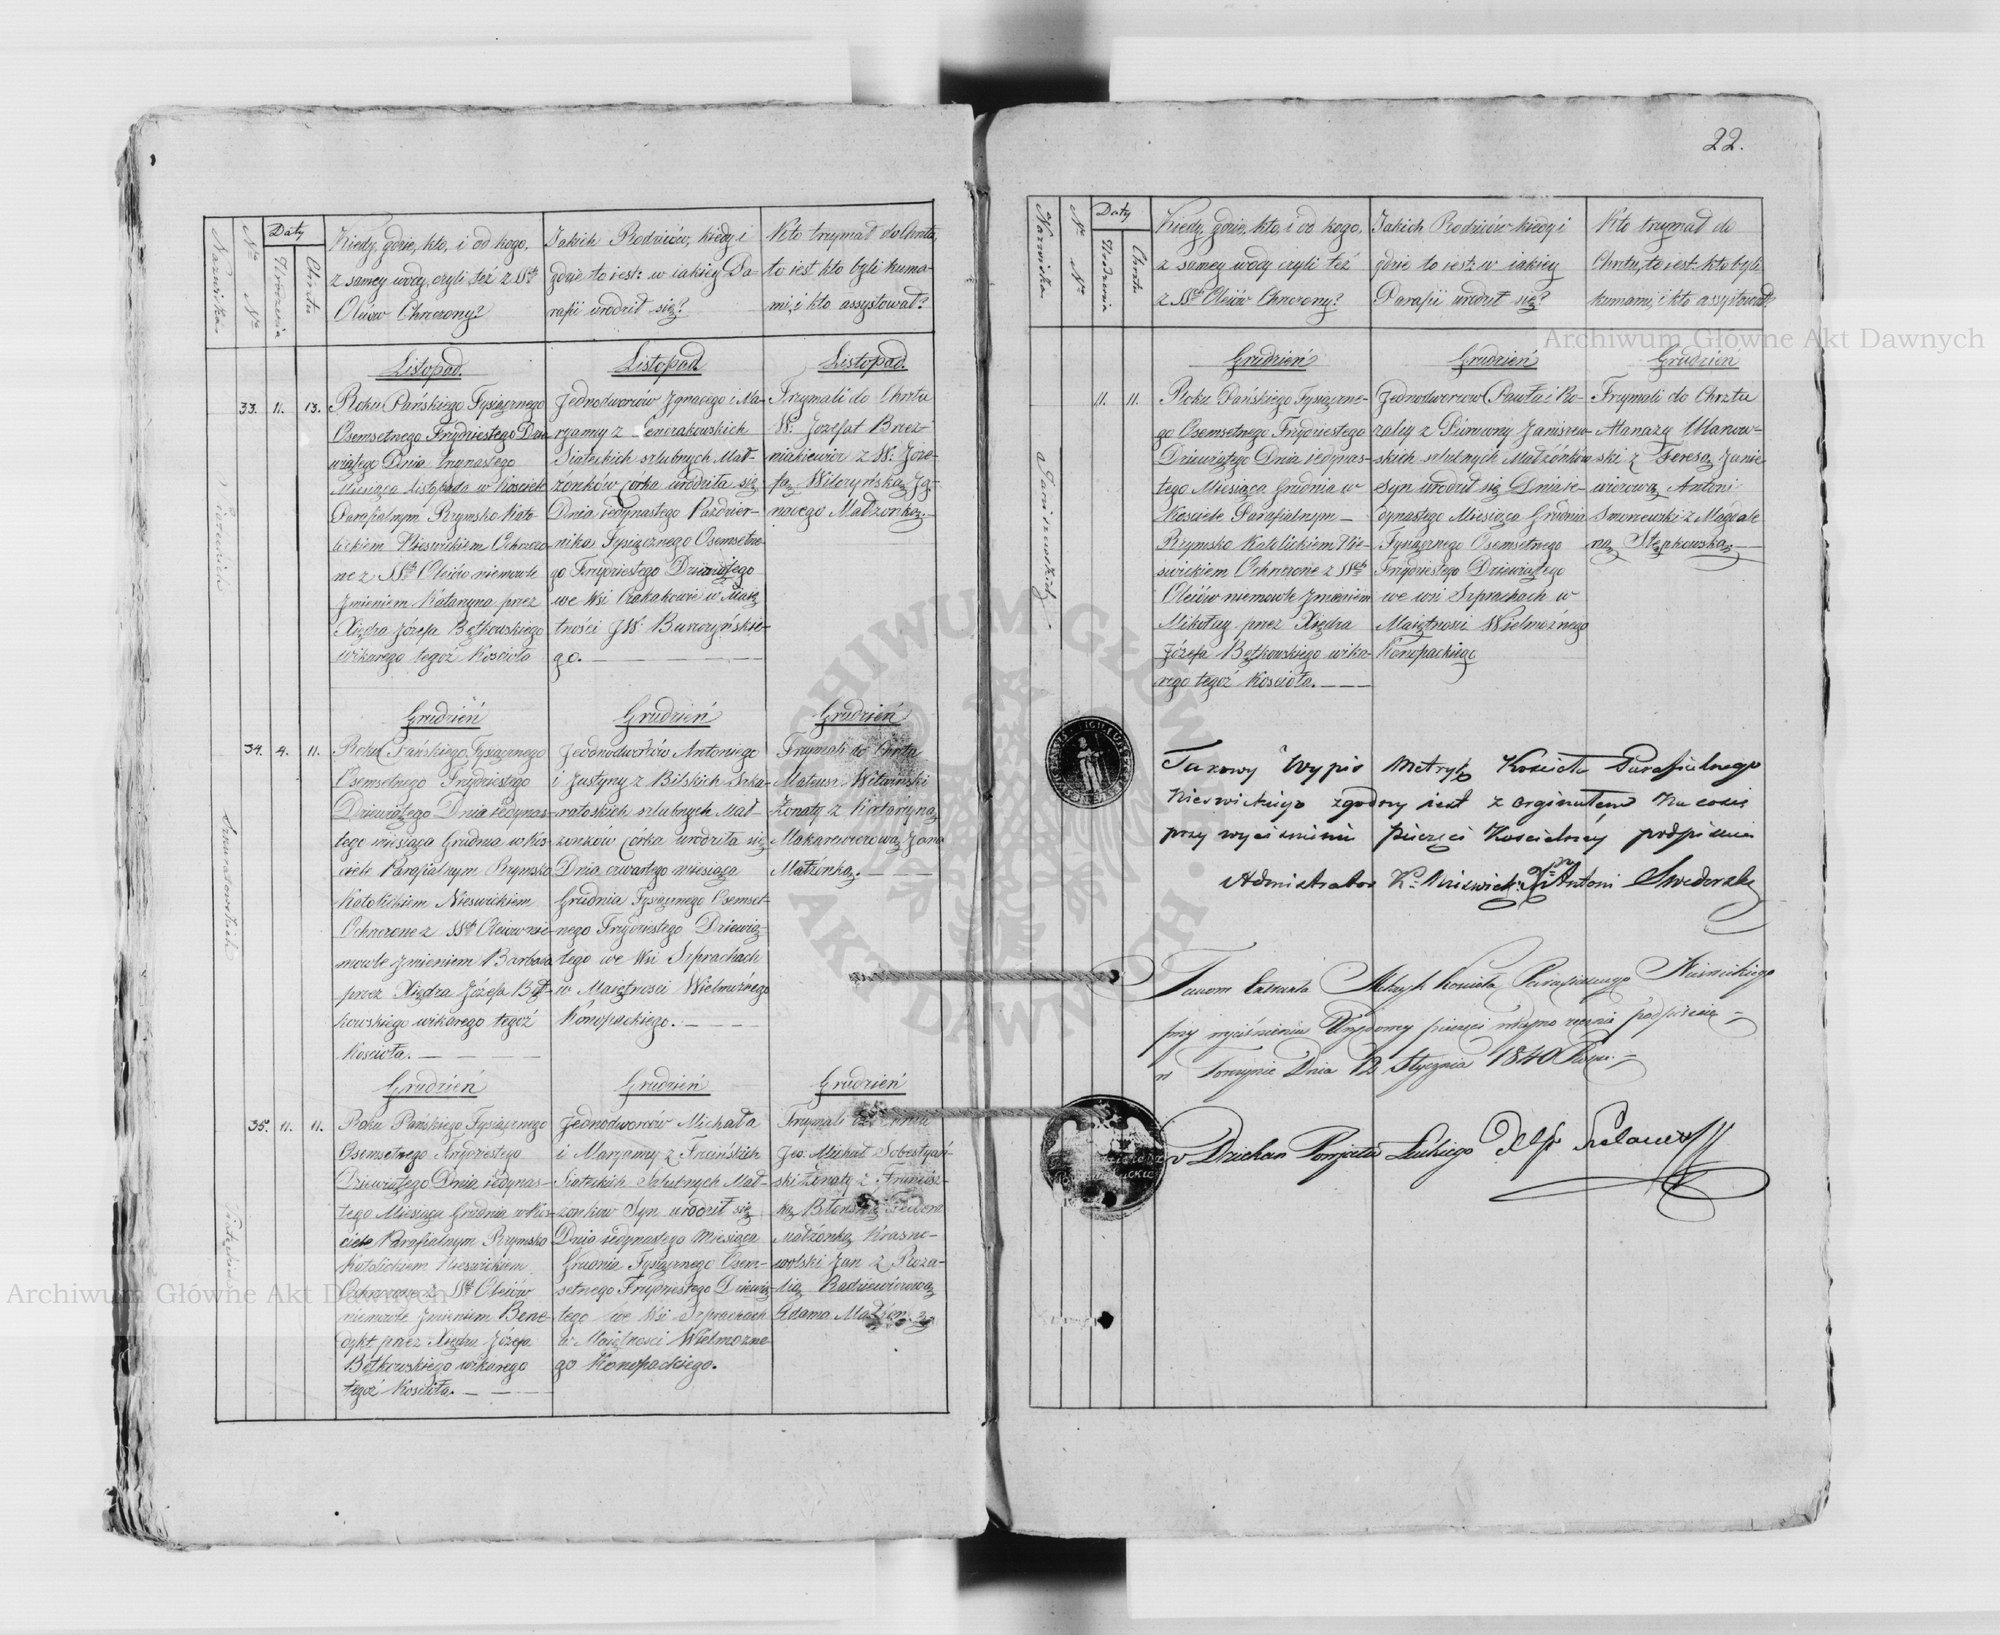 22.
Nazwiska
Nr Nr
Daty
Urodzenia
Chrztu
Kiedy, gdzie, kto, i od kogo,
z samey wody, czyli też z SSch
Oleiów Chrzczony?
Jakich Rodziców, kiedy i
gdzie to iest: w iakiey Pa-
rafii urodził się?
Kto trzymał do Chrztu,
to iest kto byli kuma-
mi, i kto assystował?
33. 11. 13.
Listopad.
Roku Pańskiego Tysiącznego
Osemsetnego Trzydziestego Dzie
wiątego Dnia trzynastego
Miesiąca Listopada w Kościele
Parafialnym Rzymsko Kato-
lickiem Nieswickiem Ochrzczo
ne z SSch Oleiów niemowle
Imieniem Kataryna przez
Xiędza Józefa Bętkowskiego
wikarego tegoż Kościoła
Listopad
Jednodworców Ignacego i Ma-
ryanny z
Siateckich szlubnych Mał-
żonków Córka urodziła się
Dnia iedynastego Paździer-
nika Tysiącznego Osemsetne-
go Trzydziestego Dziewiątego
we Wsi Czakakowie w Maię
tności JW
go.
Listopad.
Trzymali do Chrztu
W: Jozefat Brzez-
niakiewicz z W: Józe-
fą Wilczyńską Ig-
nacego Małżonką.
34. 4. 11.
Szkaratowskich
Grudzień
Roku Pańskiego Tysiącznego
Osemsetnego Trzydziestego
Dziewiątego Dnia iedynas-
tego miesiąca Grudnia w Koś-
ciele Parafialnym Rzymsko
Katolickiem Nieswickiem
Ochrzczone z SSch Oleiów nie-
mowle Imieniem Barbara
przez Xiędza Józefa Bęt-
kowskiego wikarego tegoż
Kościoła.
Grudzień
Jednodworców Antoniego
i Justyny z Bilskich Szka-
ratoskich szlubnych Mał-
żonków Córka urodziła się
Dnia czwartego miesiąca
Grudnia Tysiącznego Osemset-
nego Trzydziestego Dziewią-
tego we Wsi Szprachach
w Maiętnosci Wielmożnego
Konopackiego.
Grudzień
Trzymali do Chrztu
Mateusz
Żonaty z Kataryną
Makarewiczową Jana
Małżonką.
35. 11. 11.
Grudzień
Roku Pańskiego Tysiącznego
Osemsetnego Trzydziestego
Dziewiątego Dnia iedynas-
tego Miesiąca Grudnia w Koś-
ciele Parafialnym Rzymsko
Katolickiem Nieswickiem
Ochrzczone z SSch Oleiów
niemowle Imieniem Bene-
dykt przez Xiędza Józefa
Bętkowskiego wikarego
tegoż Kościoła.
Grudzień
Jednodworców Michała
i Maryanny z
Siateckich Szlubnych Mał-
żonkow Syn urodził się
Dnia iedynastego Miesiąca
Grudnia Tysiącznego Osem-
setnego Trzydziestego Dziewią-
tego we Wsi Szprachach
w Maiętnosci Wielmożne
go Konopackiego.
Grudzień
Trzymali do Chrztu
Jeo: Michał Sobestyań-
ski Żonaty z Francisz-
ką
Małżonką Krasno-
wolski Jan z Roza-
lią Radziewiczową
Adama Małżon.
Nazwiska
Nr Nr
Daty
Urodzenia
Chrztu
Kiedy, gdzie, kto, i od kogo,
z samey wody czyli też
z SSch Oleiów Chrzczony?
Jakich Rodziców kiedy i
gdzie to iest: w iakiey
Parafii urodził się?
Kto trzymał do
Chrztu, to iest: kto byli
kumami, i kto assystował
11. 11.
Janiszewskich
Grudzień
Roku Pańskiego Tysiączne-
go Osemsetnego Trzydziestego
Dziewiątego Dnia iedynas-
tego Miesiąca Grudnia w
Kościele Parafialnym
Rzymsko Katolickiem Nie-
swickiem Ochrzczone z SSch
Oleiów niemowle Imieniem
Mikołay przez Xiędza
Józefa Bętkowskiego wika-
rego tegoż Kościoła.
Grudzień
Jednodworcow Pawła i Ro-
zalij z Janiszew-
skich szlubnych Małżonków
Syn urodził się Dnia ie-
dynastego Miesiąca Grudnia
Tysiącznego Osemsetnego
Trzydziestego Dziewiątego
we wsi Szprachach w
Maiętnosci Wielmożnego
Konopackiego
Grudzien
Trzymali do Chrztu
Atanazy Uhanow-
ski z Teresą Janie
wiczową Antoni
Smorzewski z Magdale
ną
Takowy Wypis Metryk Kościoła Parafialnego
Nieswickiego zgodny iest z orginałem Na co się
przy wyciśnieniu pieczęci Kościelney podpisuie
Administrator K. Nieswick: X. Antoni
Takowe Extrakta Metryk Kościoła Parafialnego Nieswickiego
przy wyciśnieniu Urzędowey pieczęci własno ręcznie podpisuię
w Torczynie Dnia 12 Stycznia 1840 Roku.
Dziekan Powiatu Łuckiego
Archiwum Główne Akt Dawnych
Archiwum Główne Akt Dawnych
ARCHIWUM GŁÓWNE AKT DAWNYCH